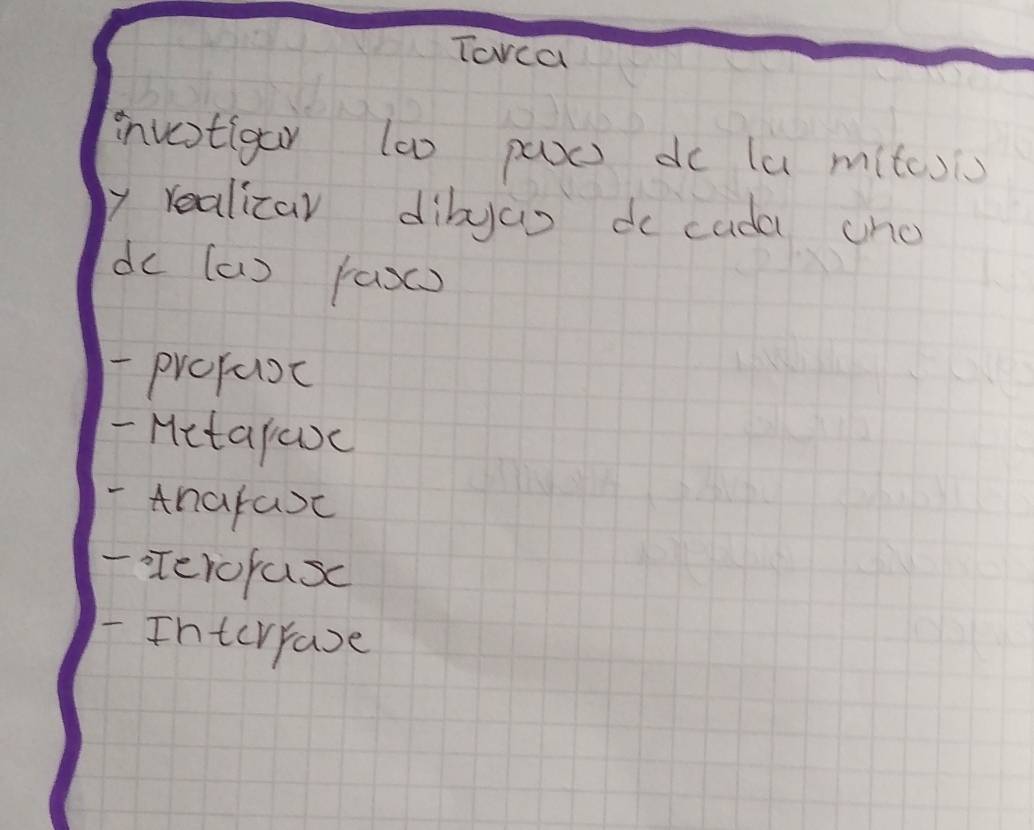 Tarea
investigar las pases de la mitosis
y realizar dibujas de cada uno
de las fases
- profase
- Metafase
- Anafase
- Terofase
- Interfase